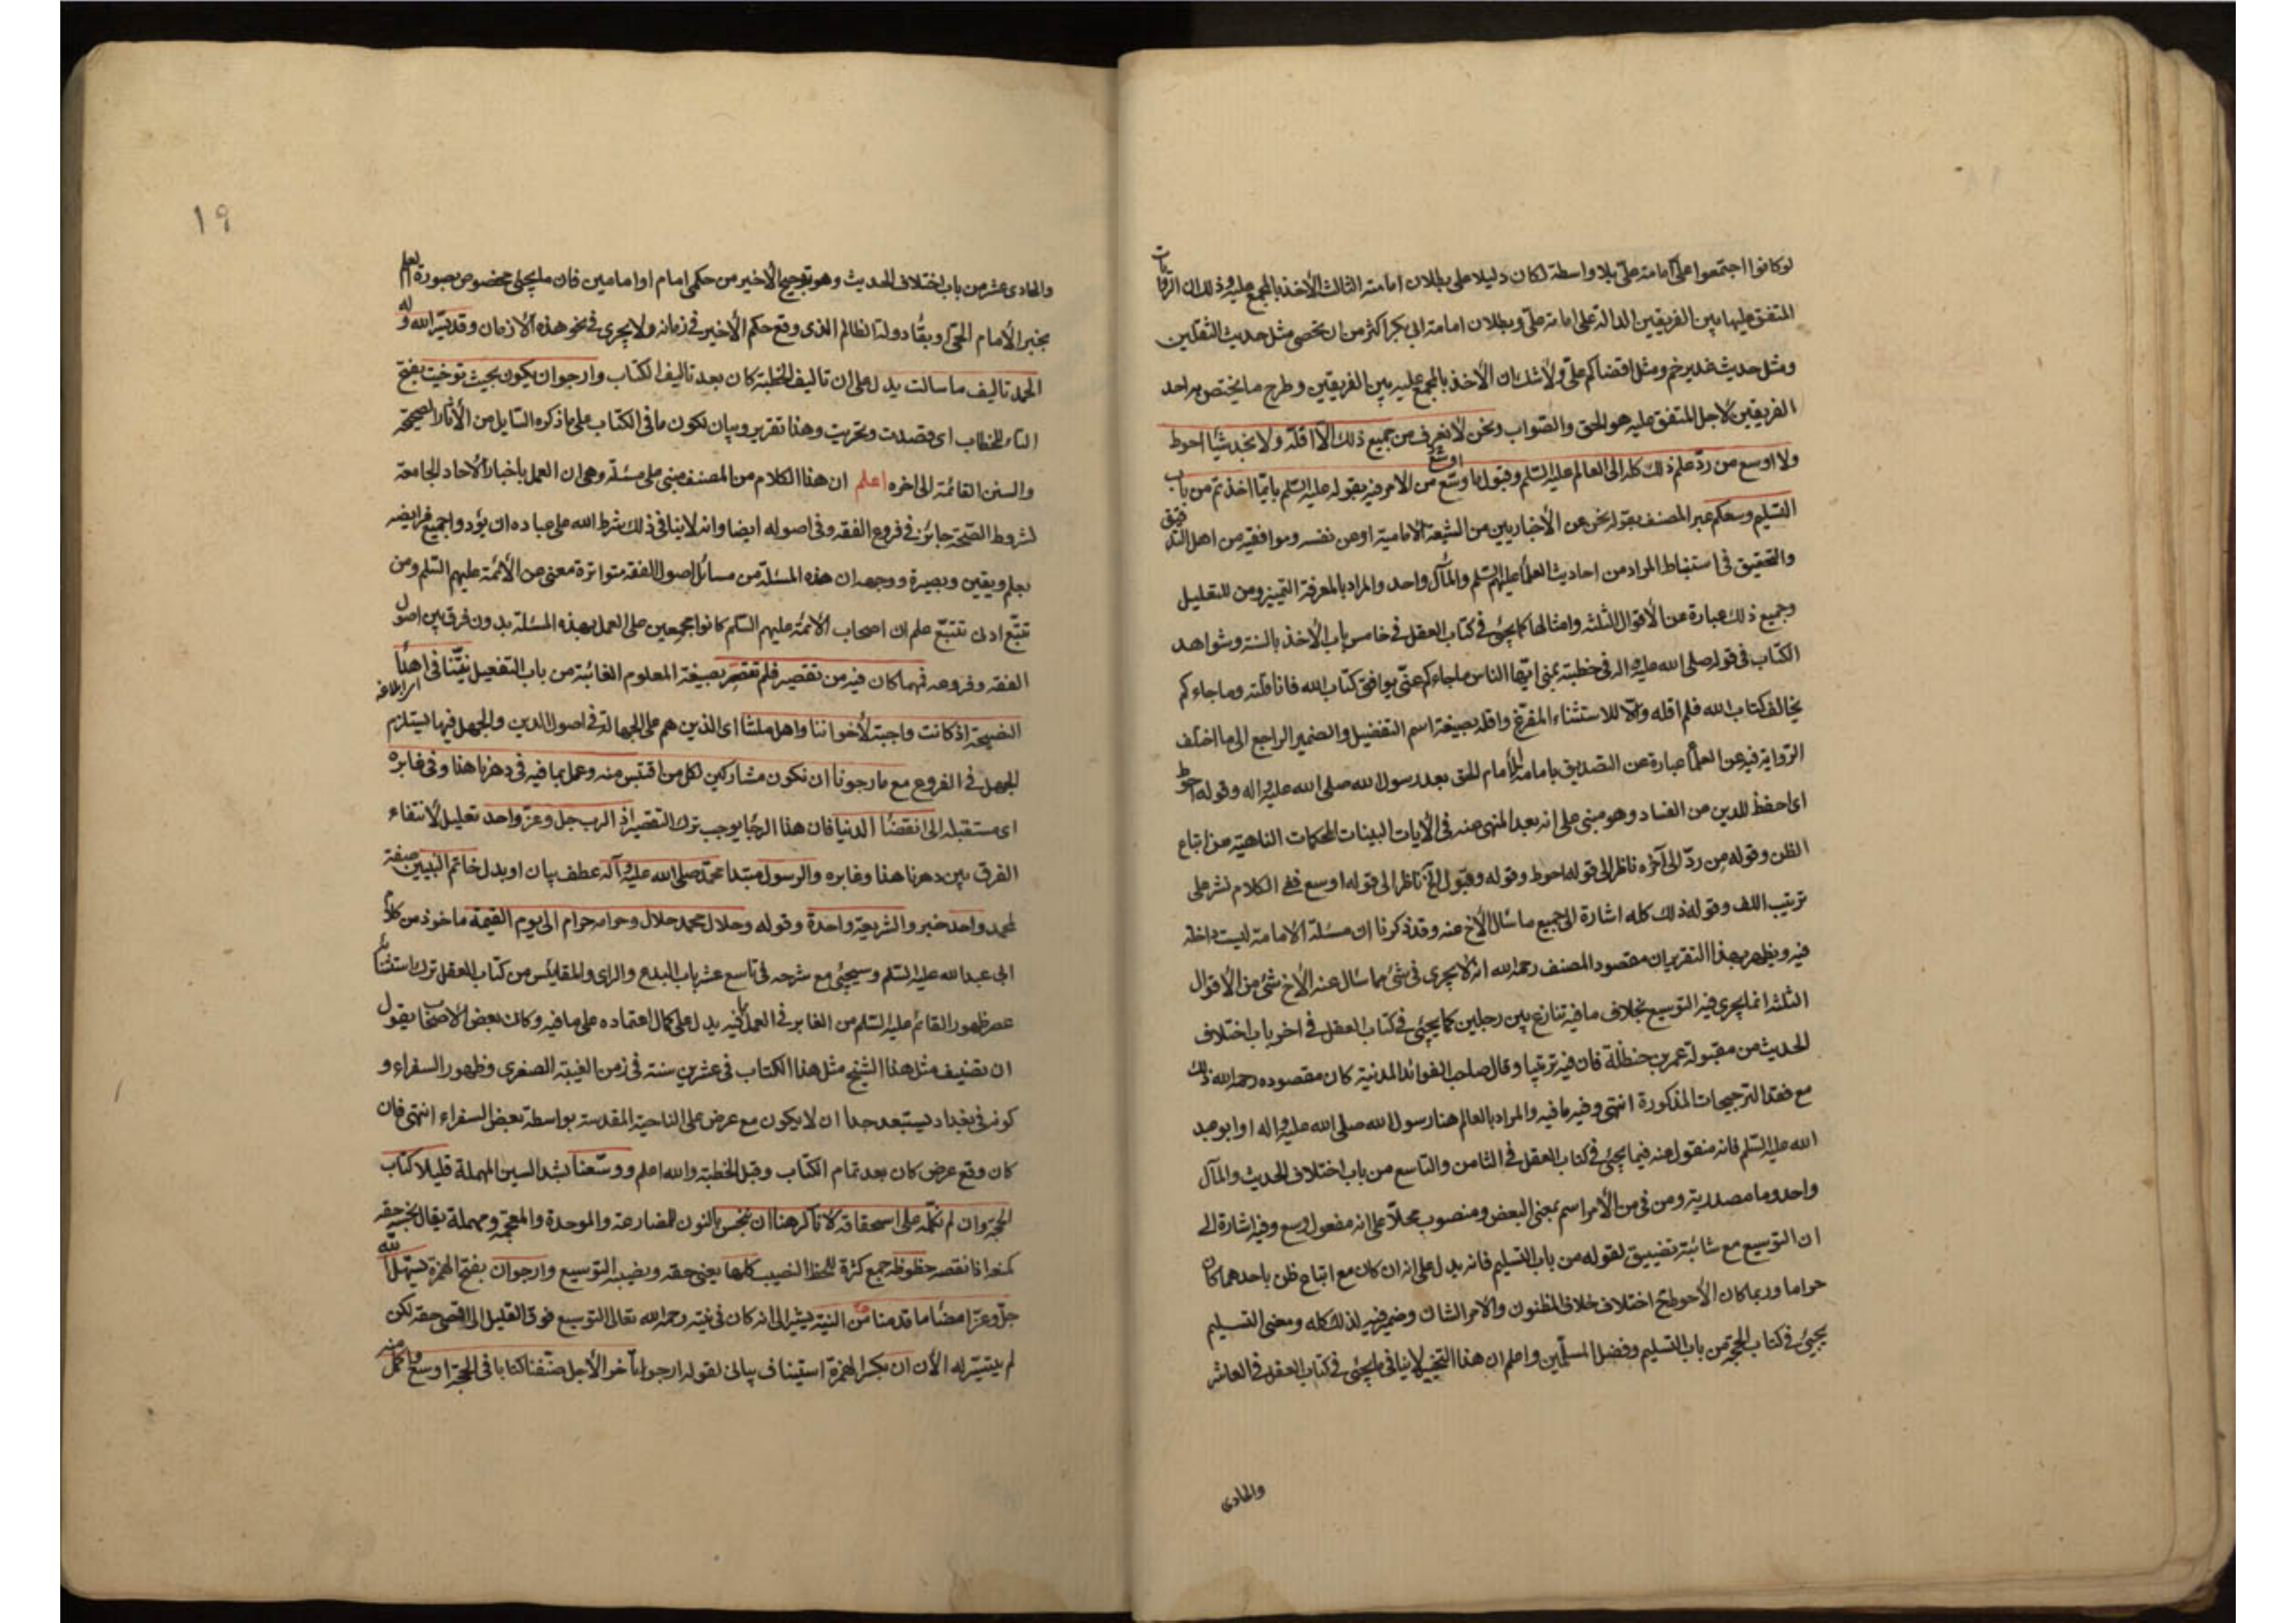 لو كانوا اجتمعوا على امامة علىّ بلا واسطة لكان دليلا على بطلان امامة الثالث الأخذ بالمجمع عليه وذلك ان الروايات
المتفق عليها بين الفريقين الدالة على امامة علىّ وبطلان امامة ابى بكر اكثر من ان تحصى مثل حديث الثقلين
ومثل حديث غدير خم ومثل اقضاكم علىّ ولا شك ان الأخذ بالمجمع عليه بين الفريقين وطرح ما يختص به احد
الفريقين لاجل المتفق عليه هو الحق والصّواب ونحن لا نعرف من جميع ذلك الّا اقلّه ولا نجد شيئا احوط
ولا اوسع من ردّ علم ذلك كله الى العالم عليه السّلم وقبول ما وسّع من الامر فيه بقوله عليه السّلم بايّما اخذتم من باب
التسليم وسعكم عبر المصنف بقوله نحن عن الأخباريين من الشيعة الامامية او عن نفسه وموافقيه من اهل التدقيق
والتحقيق فى استنباط المراد من احاديث العلماء عليهم السّلم والمآل واحد والمراد بالمعرفة التمييز ومن للتعليل
وجميع ذلك عبارة عن الأقوال الثلثة وامثالها كما يجئ فى كتاب العقل فى خامس باب الأخذ بالسنة وشواهد
الكتاب فى قوله صلى الله عليه واله فى خطبته بمنى ايّها الناس ما جاءكم عنّى يوافق كتاب الله فانا قلته وما جاءكم
يخالف كتاب الله فلم اقله والّا للاستثناء المفرّغ واقله بصيغة اسم التفضيل والضمير الراجع الى ما اختلف
الرّواية فيه عن العلماء عبارة عن التصديق بامامة الأمام الحق بعد رسول الله صلى الله عليه واله وقوله احوط
اى احفظ للدين من الفساد وهو مبنى على انه بعد المنهى عنه فى الأيات البينات المحكمات الناهية عن اتباع
الظن وقوله من ردّ الى آخره ناظر الى قوله احوط وقوله وقبول الخ ناظر الى قوله اوسع ففى الكلام نشر على
ترتيب اللف وقوله ذلك كله اشارة الى جميع ما سأل الأخ عنه وقد ذكرنا ان مسئلة الامامة ليست داخلة
فيه ويظهر بهذا التقرير ان مقصود المصنف رحمه الله انه لا يجرى فى شئ مما سأل عنه الأخ شئ من الأقوال
الثلثة انما يجرى فيه التوسيع بخلاف ما فيه تنازع بين رجلين كما يجئ فى كتاب العقل فى اخر باب اختلاف
الحديث من مقبولة عمر بن حنظلة فان فيه ترتيبا وقال صاحب الفوائد المدنية كان مقصوده رحمه الله ذلك
مع فقد الترجيحات المذكورة انتهى وفيه ما فيه والمراد بالعالم هنا رسول الله صلى الله عليه واله او ابو عبد
الله عليه السّلم فانه منقول عنه فيما يجئ فى كتاب العقل فى الثامن والتاسع من باب اختلاف الحديث والمآل
واحد وما مصدرية ومن فى من الأمر اسم بمعنى البعض ومنصوب محلّا على انه مفعول وسع وفيه اشارة الى
ان التوسيع مع شائبة تضييق لقوله من باب التسليم فانه يدل على انه ان كان مع اتباع ظن باحدهما كان
حراما وربما كان الأحوط ح اختلاف خلاف المظنون والامر الشاك وضمير فيه لذلك كله ومعنى التسليم
يجئ فى كتاب الحجة من باب التسليم وفضل المسلّمين واعلم ان هذا التخيير لا ينافى ما يجئ فى كتاب العقل فى العاشر
والحادى
١٩
والحادى عشر من باب اختلاف الحديث وهو ترجيح الأخير من حكمى امام او امامين فان ما يجئ مخصوص بصورة العلم
بخبر الأمام الحىّ او بقاء دولة الظالم الذى وقع حكم الأخير فى زمانه ولا يجرى فى نحو هذه الأزمان وقد يسّر الله وله
الحمد تاليف ما سالت يدل على ان تاليف الخطبة كان بعد تاليف الكتاب وارجو ان يكون بحيث توخّيت بفتح
التاء للخطاب اى قصدت وتحرّيت وهذا تقرير وبيان لكون ما فى الكتاب على ما ذكره السّايل من الأثار الصحيحة
والسنن القائمة الى اخره اعلم ان هذا الكلام من المصنف مبنى على مسئلة وهى ان العمل باخبار الأحاد الجامعة
لشروط الصّحة جائز فى فروع الفقه وفى اصوله ايضا وانه لا ينافى ذلك شرط الله على عباده ان يؤدوا جميع فرايضه
بعلم ويقين وبصيرة ووجهه ان هذه المسئلة من مسائل اصول الفقه متواترة معنى عن الأئمة عليهم السّلم ومن
تتبّع ادنى تتبّع علم ان اصحاب الائمة عليهم السّلم كانوا مجمعين على العمل بهذه المسئلة بدون فرق بين اصول
الفقه وفروعه فمهما كان فيه من تقصير فلم تقصر بصيغة المعلوم الغائبة من باب التفعيل نيّتنا فى اهداء
النصيحة اذ كانت واجبة لأخواننا واهل ملّتنا اى الذين هم على الجهالة فى اصول الدين والجهل فيها يستلزم
الجهل فى الفروع مع ما رجونا ان نكون مشاركين لكل من اقتبس منه وعمل بما فيه فى دهرنا هذا وفى غابره
اى مستقبله الى انقضاء الدنيا فان هذا الرجاء يوجب ترك التقصير اذ الرب جل وعزّ واحد تعليل لأنتفاء
الفرق بين دهرنا هذا وغابره والرسول مبتدا محمّد صلى الله عليه وآله عطف بيان او بدل خاتم النبيين صفة
لمحمد واحد خبر والشريعة واحدة وقوله وحلال محمد حلال وحرامه حرام الى يوم القيمة ماخوذ من كلام
ابى عبد الله عليه السّلم وسيجئ مع شرحه فى تاسع عشر باب البدع والراى والمقائيس من كتاب العقل ترك استثنائه
عصر ظهور القائم عليه السّلم من الغابر فى العمل بما فيه يدل على كمال اعتماده على ما فيه وكان بعض الأصحاب يقول
ان تصنيف مثل هذا الشيخ مثل هذا الكتاب فى عشرين سنة فى زمن الغيبة الصغرى وظهور السفراء و
كونه فى بغداد يستبعد جدا ان لا يكون مع عرض على الناحية المقدسة بواسطة بعض السفراء انتهى فان
كان وقع عرض كان بعد تمام الكتاب وقبل الخطبة والله اعلم ووسّعنا بشد السين المهملة قليلا كتاب
الحجّة وان لم نكمّله على استحقاقه لأنا كرهنا ان نبخس بالنون للمضارعة والموحدة والمعجمة ومهملة يقال بخسه حقه
كمنع اذا نقصه حظوظه جمع كثرة للحظ النصيب كلها يعنى حقه ونصيبه التوسيع وارجو ان بفتح الهمزة يسهّل الله
جلّ وعزّ امضاء ما قدمنا من النية يشير الى انه كان فى نيته رحمه الله تعالى التوسيع فوق القليل الى اقصى حقه لكن
لم يتيسّر له الأن ان بكسر الهمزة استيناف بيانى لقوله ارجو تأخّر الأجل صنّفنا كتابا فى الحجة اوسع واكمل منه